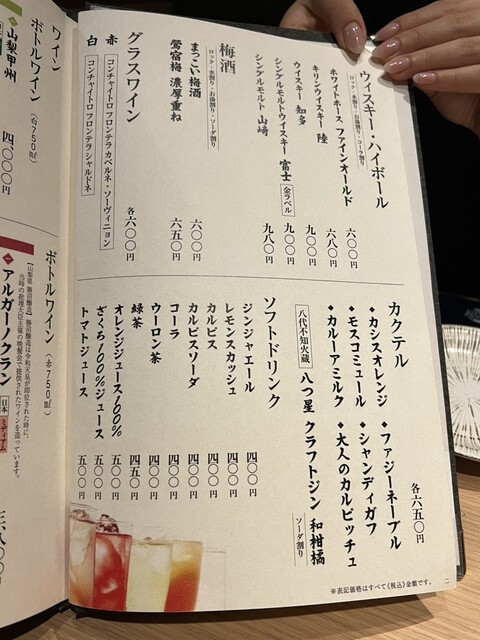 ウィスキー・ハイボール
ロック・水割り・お湯割り・コーラ割り
ホワイトホース ファインオールド 六〇〇円
キリンウィスキー 陸 六八〇円
ウイスキー 知多 九〇〇円
シングルモルトウィスキー 富士 金ラベル 九〇〇円
シングルモルト 山崎 九八〇円
梅酒
ロック・水割り・お湯割り・ソーダ割り
まっこい梅酒 六〇〇円
鶯宿梅 濃厚重ね 六五〇円
グラスワイン 各六〇〇円
赤 コンチャイトロ フロンテラ カベルネ・ソーヴィニョン
白 コンチャイトロ フロンテラ シャルドネ
カクテル 各六五〇円
◆カシスオレンジ ◆ファジーネーブル
◆モスコミュール ◆シャンディガフ
◆カルーアミルク ◆大人のカルピッチュ
八代不知火蔵 八つ星 クラフトジン 和柑橘 ソーダ割り
ソフトドリンク
ジンジャエール 四〇〇円
レモンスカッシュ 四〇〇円
カルピス 四〇〇円
カルピスソーダ 四〇〇円
コーラ 四〇〇円
ウーロン茶 四〇〇円
緑茶 四五〇円
オレンジジュース100% 五〇〇円
ざくろ100%ジュース 五〇〇円
トマトジュース 五〇〇円
※表記価格はすべて《税込》金額です。
ワイン
ボトルワイン (白750㎖)
山梨甲州 四〇〇〇円
ボトルワイン (赤750㎖)
【山梨県 勝沼醸造】勝沼醸造は令和天皇が即位された時に、
当時の総理大臣主催の晩餐会で提供されたワインを造っています。
アルガーノクラン 日本 ミディアム